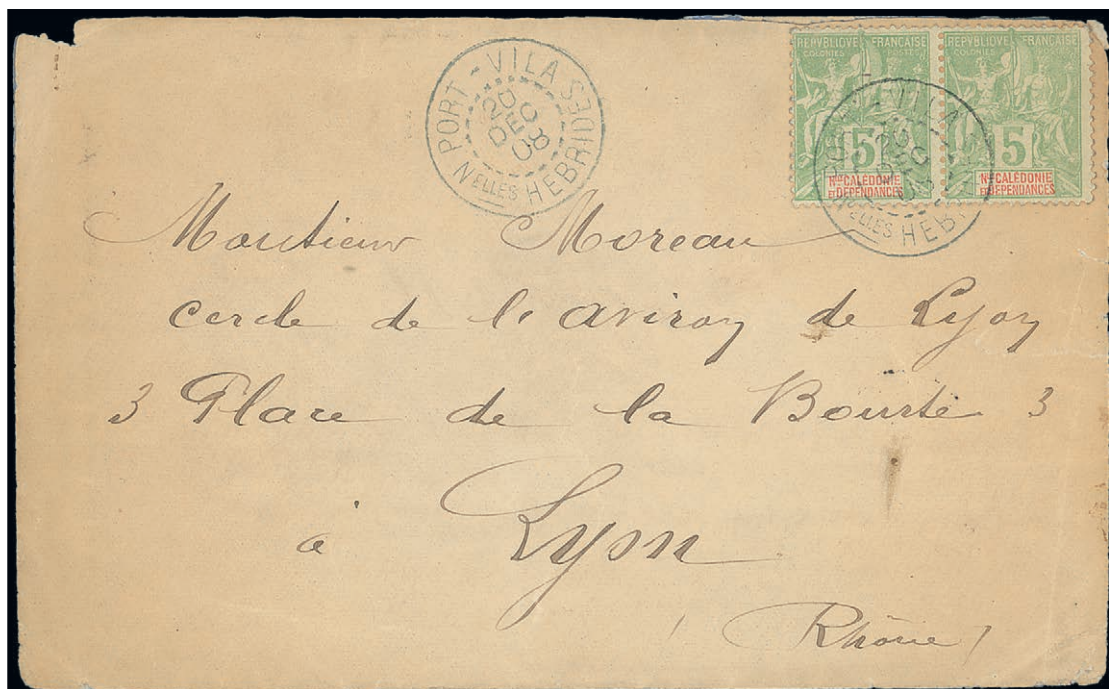 PORT-VILA
20
DEC
08
Nelles HEBRIDES
REPVBLIQVE FRANÇAISE
COLONIES POSTES
5
Nlle CALÉDONIE
ET DÉPENDANCES
REPVBLIQVE FRANÇAISE
COLONIES POSTES
5
Nlle CALÉDONIE
ET DÉPENDANCES
Monsieur Moreau
cercle de l'aviron de Lyon
3 Place de la Bourse 3
à Lyon
(Rhône)